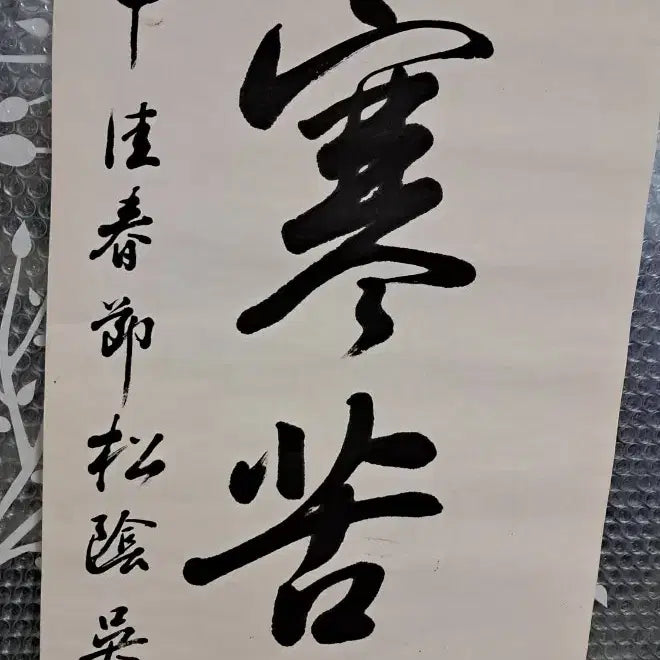 寒苦
佳春節松陰吳